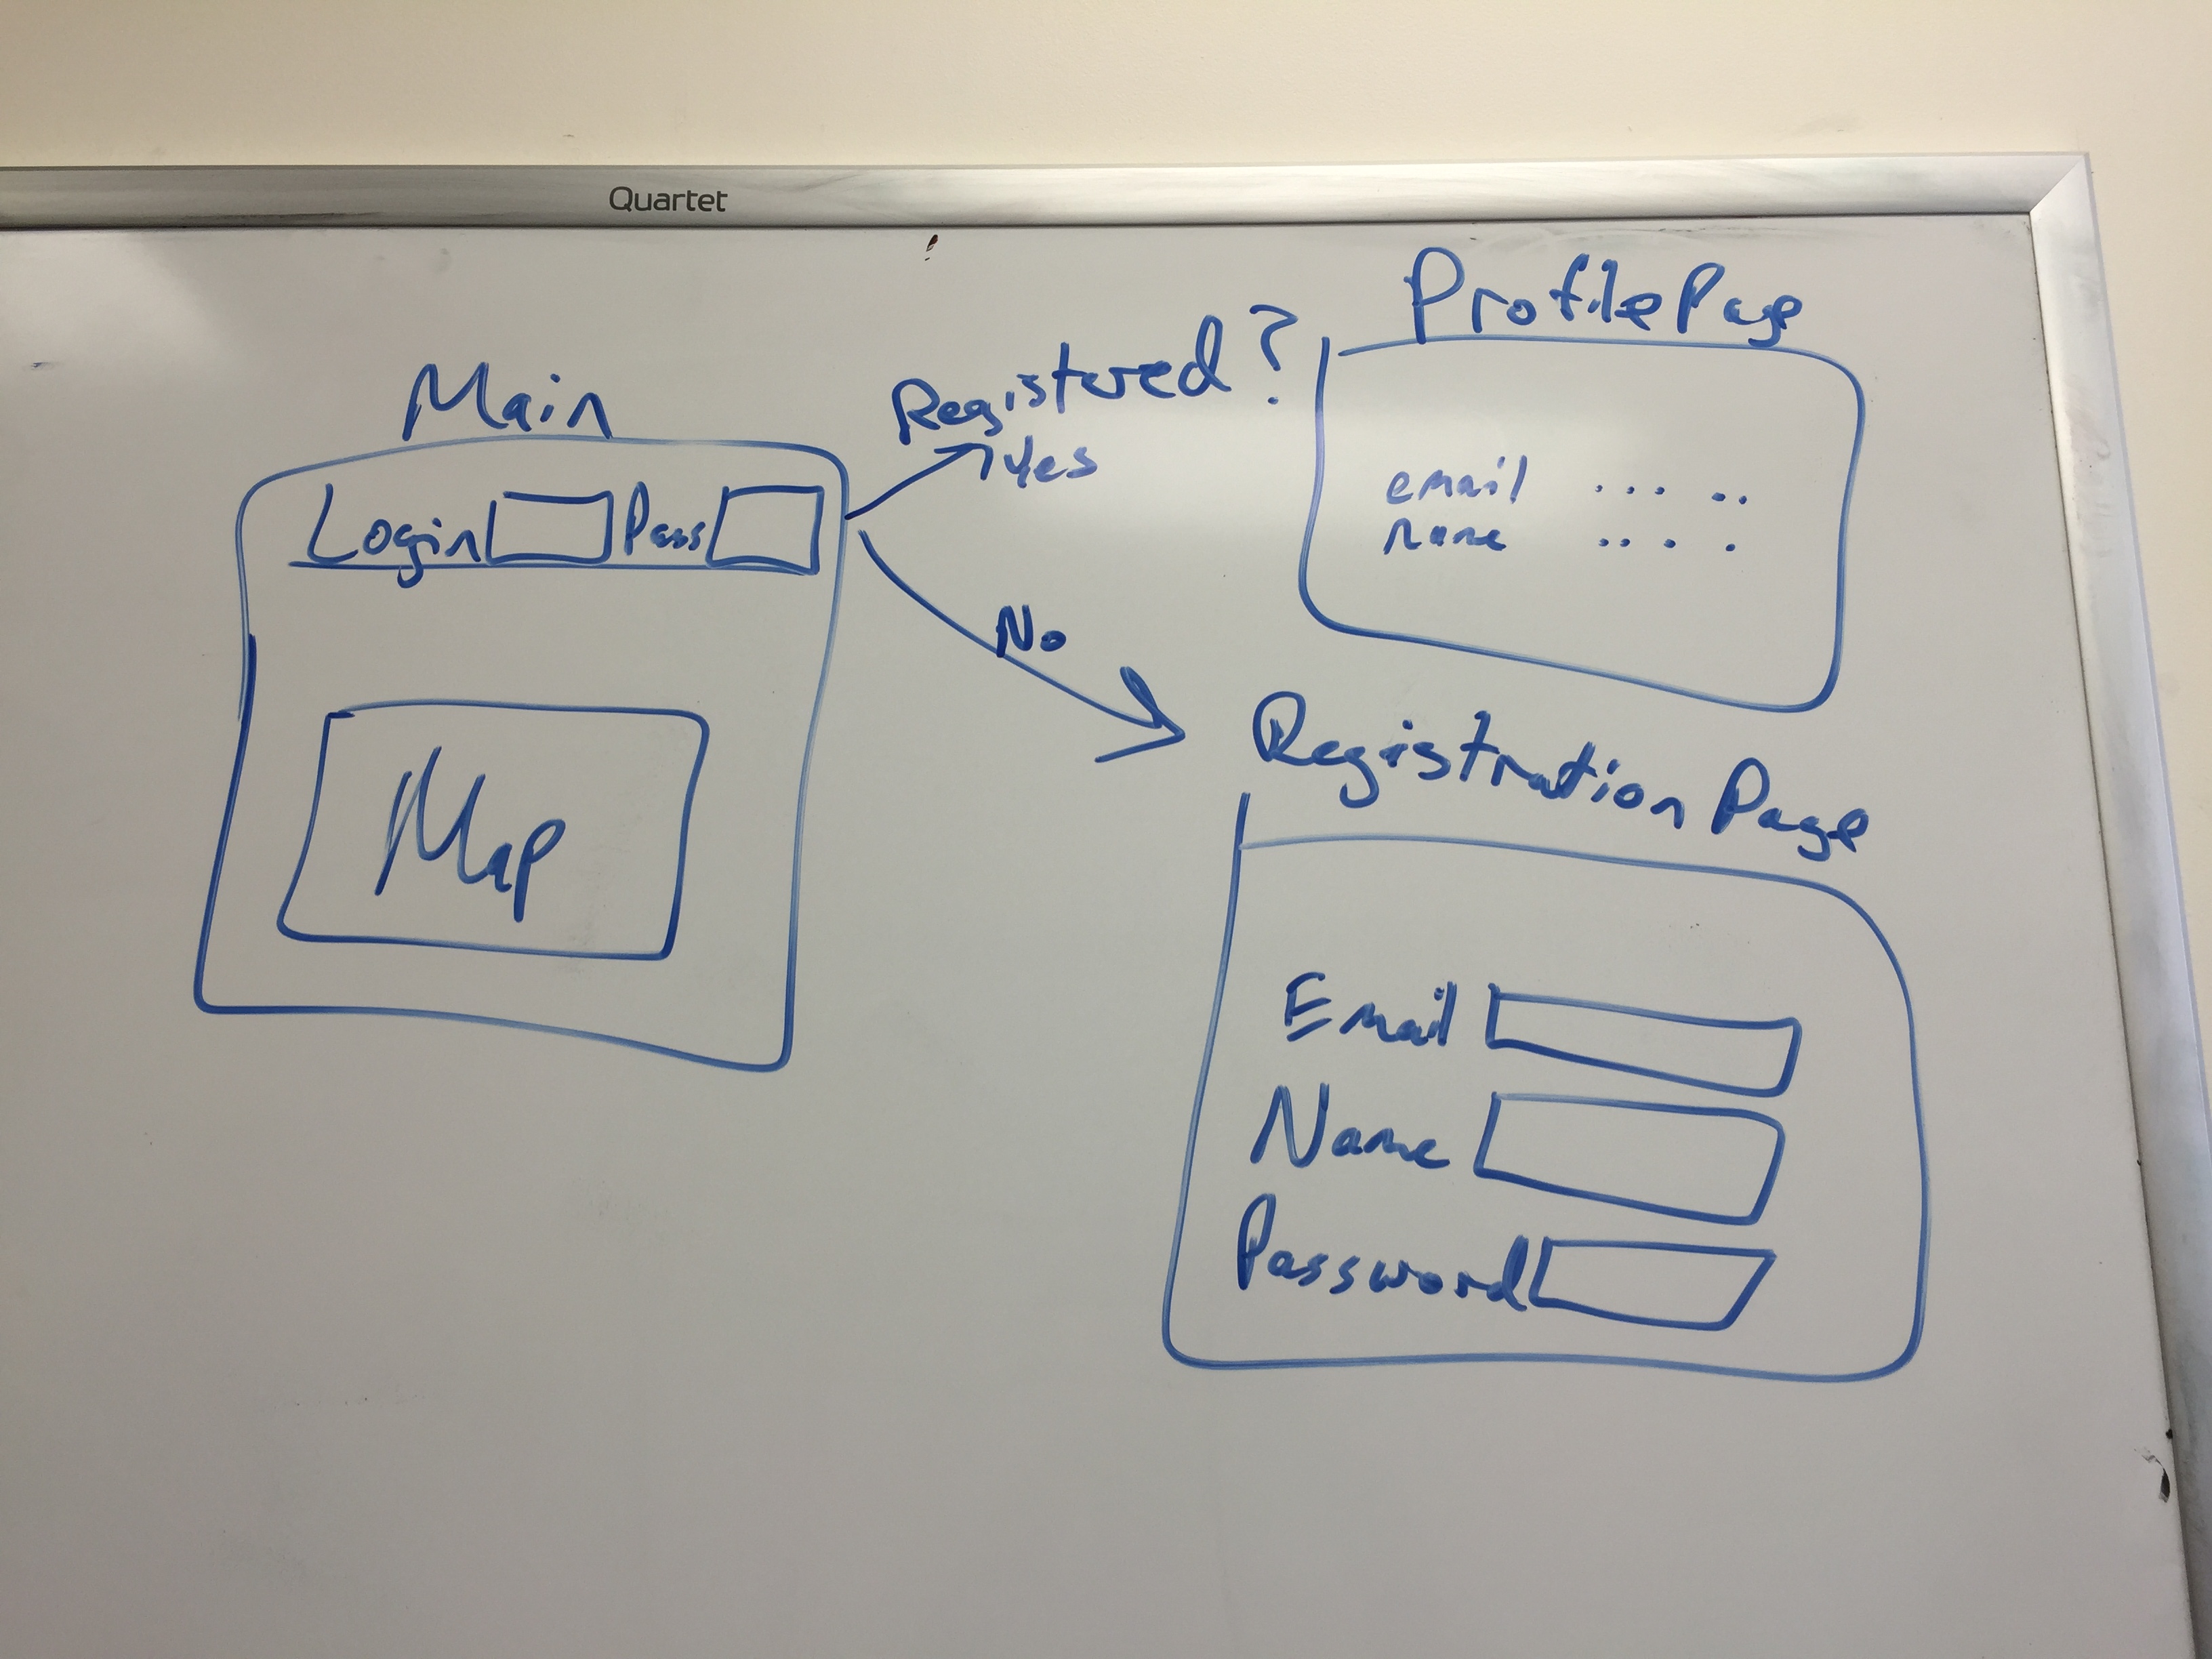 Quartet
Main
Login Pass
Map
Registered?
Yes
No
Profile Page
email ... ..
name .. . .
Registration Page
Email
Name
Password